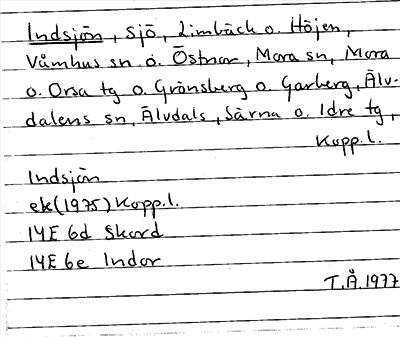 Indsjön, sjö, Limbäck o. Höjen,
Våmhus sn o. Östnor, Mora sn, Mora
o. Orsa tg o. Gränsberg o. Garberg, Älv-
dalens sn, Älvdals, Särna o. Idre tg,
Kopp.l.
Indsjön
ek(1975) Kopp.l.
14E 6d Skord
14E 6e Indor
T.Å.1977